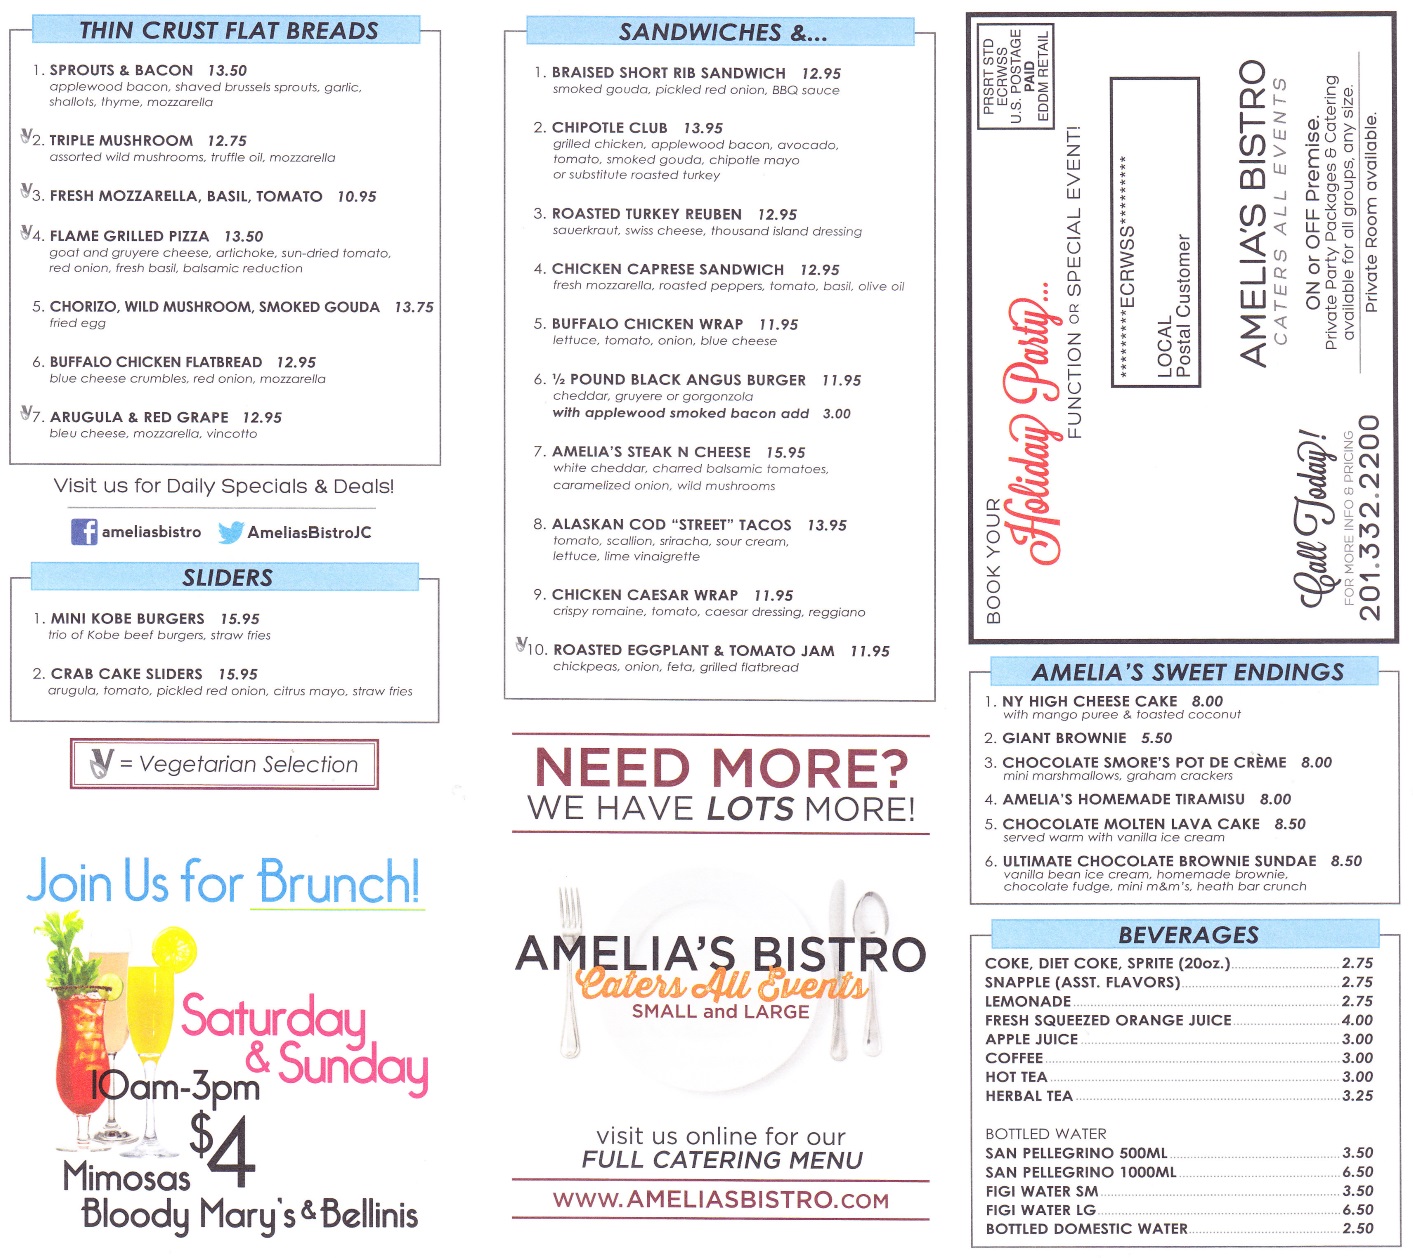 THIN CRUST FLAT BREADS
1. SPROUTS & BACON 13.50
applewood bacon, shaved brussels sprouts, garlic,
shallots, thyme, mozzarella
2. TRIPLE MUSHROOM 12.75
assorted wild mushrooms, truffle oil, mozzarella
3. FRESH MOZZARELLA, BASIL, TOMATO 10.95
4. FLAME GRILLED PIZZA 13.50
goat and gruyere cheese, artichoke, sun-dried tomato,
red onion, fresh basil, balsamic reduction
5. CHORIZO, WILD MUSHROOM, SMOKED GOUDA 13.75
fried egg
6. BUFFALO CHICKEN FLATBREAD 12.95
blue cheese crumbles, red onion, mozzarella
7. ARUGULA & RED GRAPE 12.95
bleu cheese, mozzarella, vincotto
Visit us for Daily Specials & Deals!
f ameliasbistro AmeliasBistroJC
SLIDERS
1. MINI KOBE BURGERS 15.95
trio of Kobe beef burgers, straw fries
2. CRAB CAKE SLIDERS 15.95
arugula, tomato, pickled red onion, citrus mayo, straw fries
V = Vegetarian Selection
Join Us for Brunch!
Saturday
& Sunday
10am-3pm
$4
Mimosas
Bloody Mary's & Bellinis
SANDWICHES &...
1. BRAISED SHORT RIB SANDWICH 12.95
smoked gouda, pickled red onion, BBQ sauce
2. CHIPOTLE CLUB 13.95
grilled chicken, applewood bacon, avocado,
tomato, smoked gouda, chipotle mayo
or substitute roasted turkey
3. ROASTED TURKEY REUBEN 12.95
sauerkraut, swiss cheese, thousand island dressing
4. CHICKEN CAPRESE SANDWICH 12.95
fresh mozzarella, roasted peppers, tomato, basil, olive oil
5. BUFFALO CHICKEN WRAP 11.95
lettuce, tomato, onion, blue cheese
6. ½ POUND BLACK ANGUS BURGER 11.95
cheddar, gruyere or gorgonzola
with applewood smoked bacon add 3.00
7. AMELIA'S STEAK N CHEESE 15.95
white cheddar, charred balsamic tomatoes,
caramelized onion, wild mushrooms
8. ALASKAN COD "STREET" TACOS 13.95
tomato, scallion, sriracha, sour cream,
lettuce, lime vinaigrette
9. CHICKEN CAESAR WRAP 11.95
crispy romaine, tomato, caesar dressing, reggiano
10. ROASTED EGGPLANT & TOMATO JAM 11.95
chickpeas, onion, feta, grilled flatbread
NEED MORE?
WE HAVE LOTS MORE!
AMELIA'S BISTRO
Caters All Events
SMALL and LARGE
visit us online for our
FULL CATERING MENU
WWW.AMELIASBISTRO.COM
PRSRT STD
ECRWSS
U.S. POSTAGE
PAID
EDDM RETAIL
BOOK YOUR
Holiday Party...
FUNCTION OR SPECIAL EVENT!
*********ECRWSS*********
LOCAL
Postal Customer
AMELIA'S BISTRO
CATERS ALL EVENTS
ON or OFF Premise.
Private Party Packages & Catering
available for all groups, any size.
Private Room available.
Call Today!
FOR MORE INFO & PRICING
201.332.2200
AMELIA'S SWEET ENDINGS
1. NY HIGH CHEESE CAKE 8.00
with mango puree & toasted coconut
2. GIANT BROWNIE 5.50
3. CHOCOLATE SMORE'S POT DE CRÈME 8.00
mini marshmallows, graham crackers
4. AMELIA'S HOMEMADE TIRAMISU 8.00
5. CHOCOLATE MOLTEN LAVA CAKE 8.50
served warm with vanilla ice cream
6. ULTIMATE CHOCOLATE BROWNIE SUNDAE 8.50
vanilla bean ice cream, homemade brownie,
chocolate fudge, mini m&m's, heath bar crunch
BEVERAGES
COKE, DIET COKE, SPRITE (20oz.) 2.75
SNAPPLE (ASST. FLAVORS) 2.75
LEMONADE 2.75
FRESH SQUEEZED ORANGE JUICE 4.00
APPLE JUICE 3.00
COFFEE 3.00
HOT TEA 3.00
HERBAL TEA 3.25
BOTTLED WATER
SAN PELLEGRINO 500ML 3.50
SAN PELLEGRINO 1000ML 6.50
FIGI WATER SM 3.50
FIGI WATER LG 6.50
BOTTLED DOMESTIC WATER 2.50